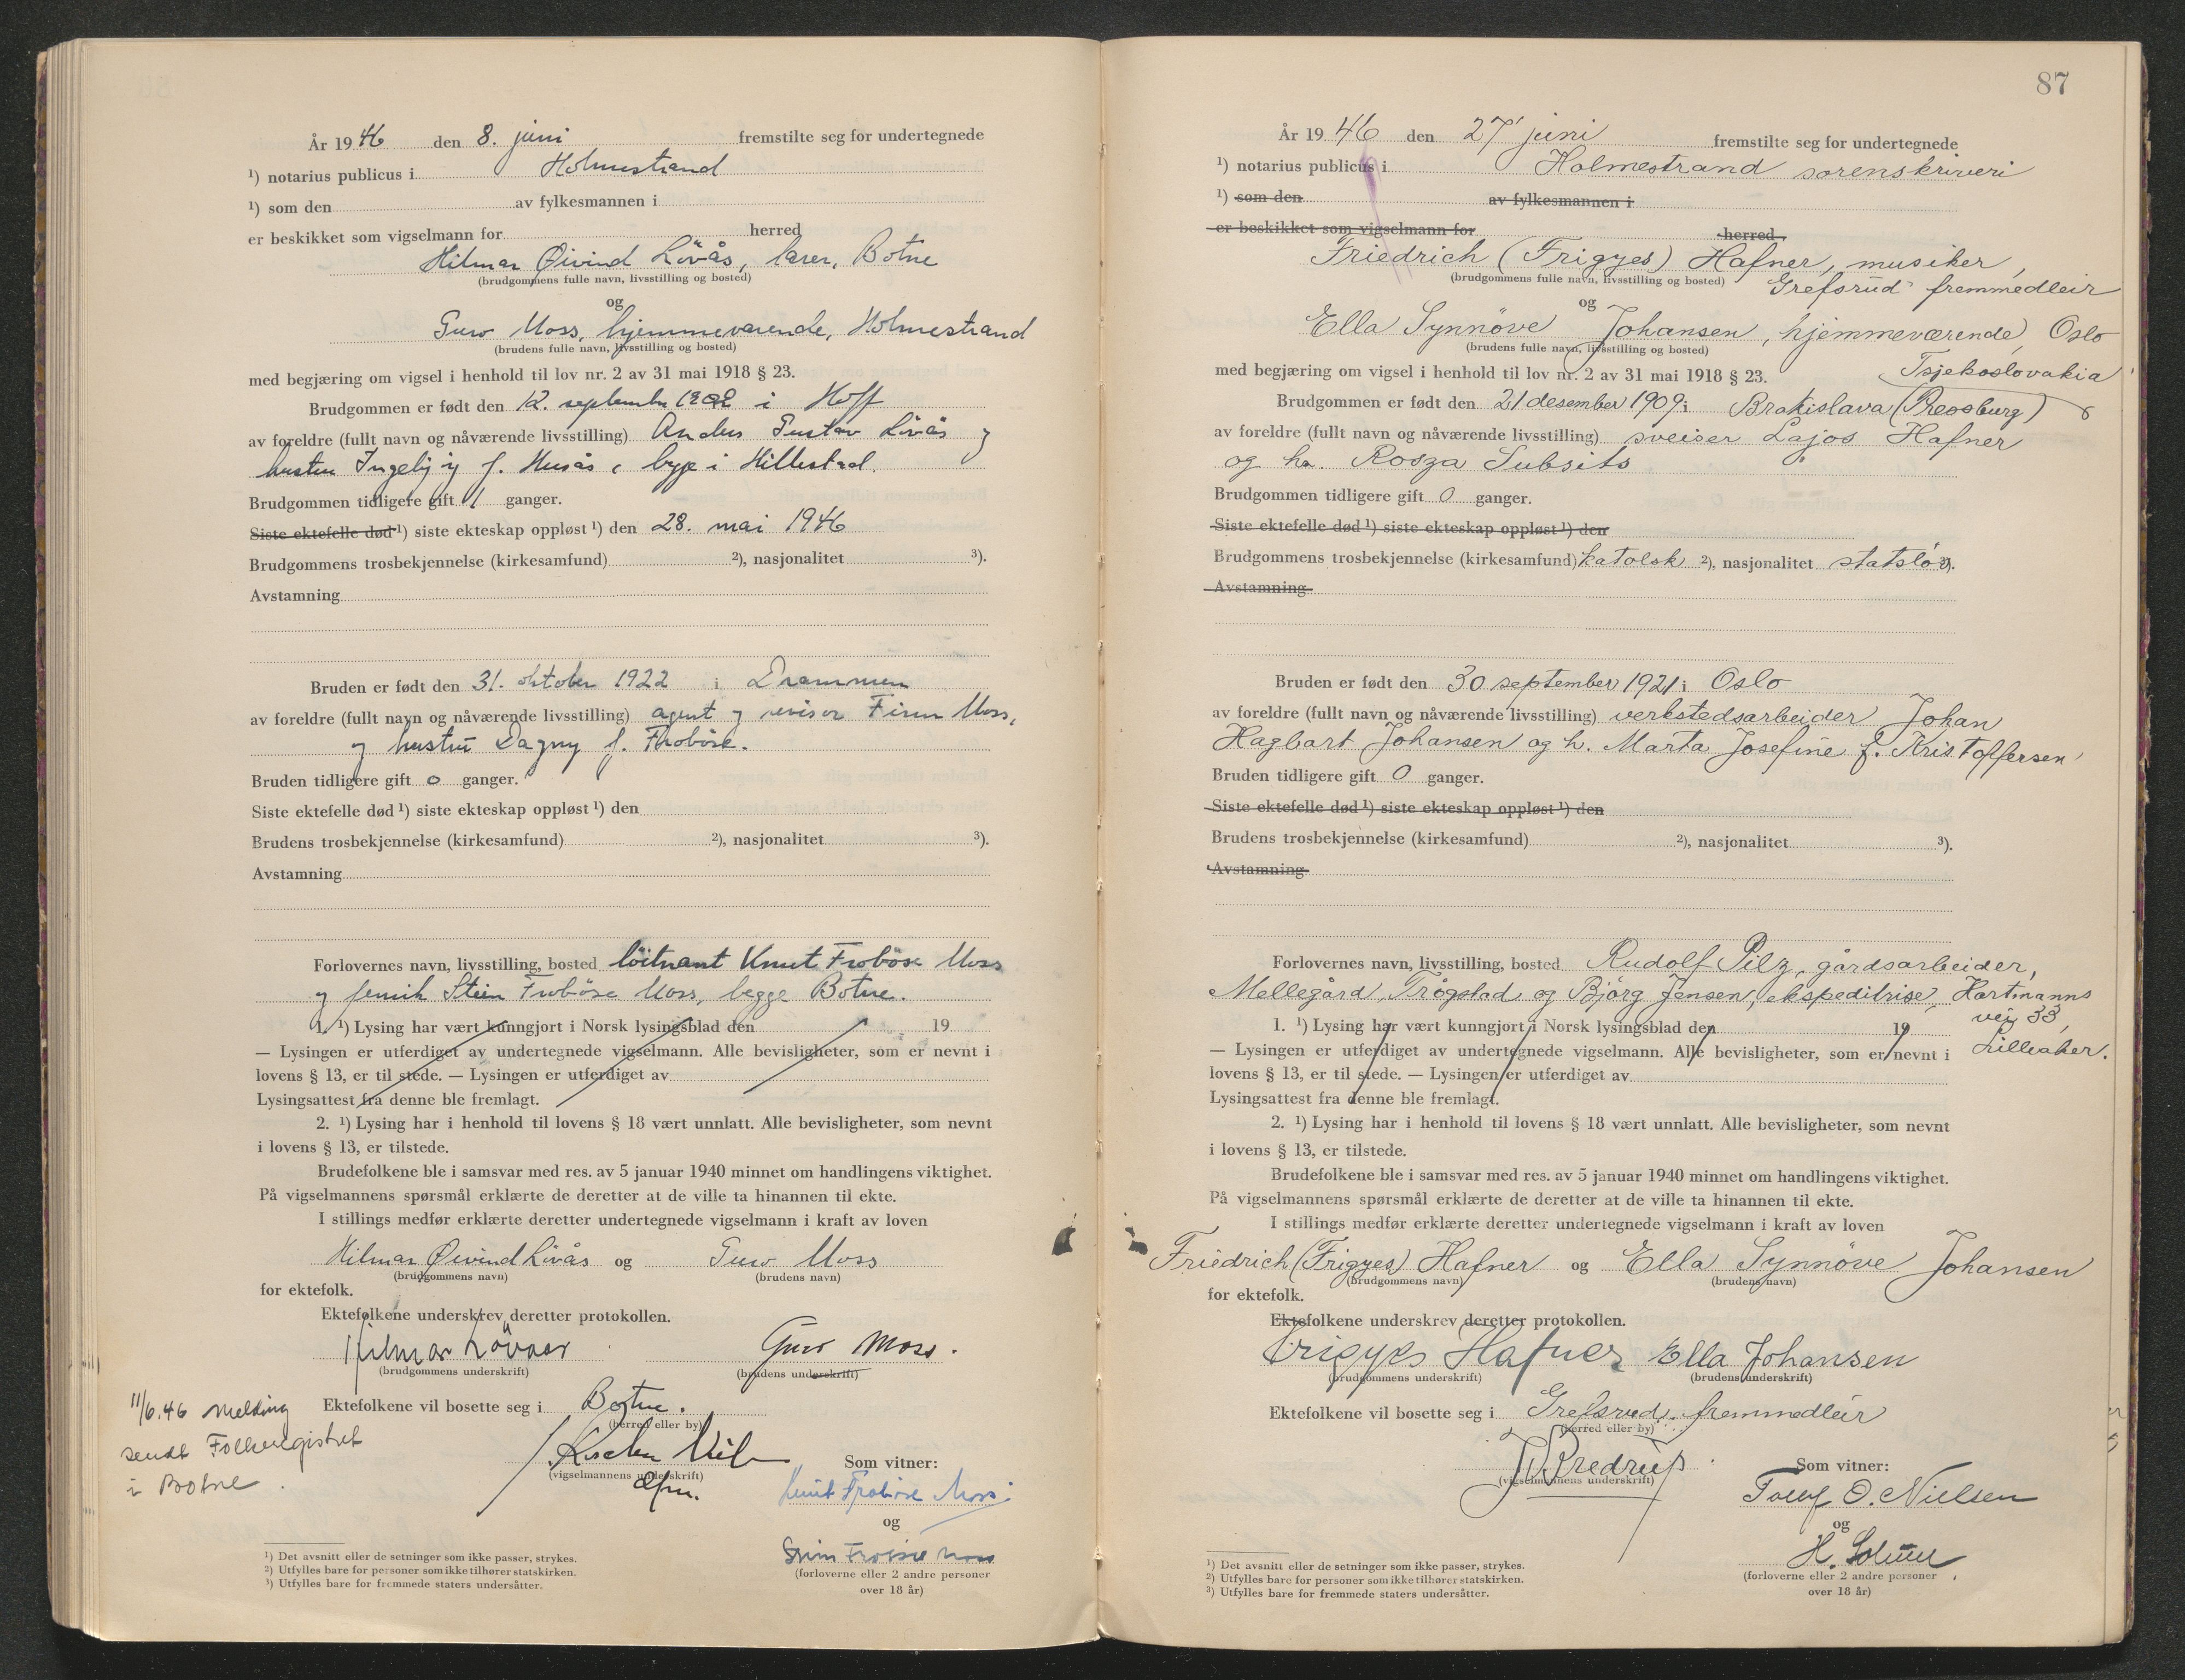 År 1946 den 8. juni fremstilte seg for undertegnede
¹) notarius publicus i Holmestrand
¹) som den av fylkesmannen i
er beskikket som vigselmann for herred
Hilmar Øivind Lövås, lærer, Botne
(brudgommens fulle navn, livsstilling og bosted)
og
Guro Moss, hjemmeværende, Holmestrand
(brudens fulle navn, livsstilling og bosted)
med begjæring om vigsel i henhold til lov nr. 2 av 31 mai 1918 § 23.
Brudgommen er født den 12. september 1902 i Hoff
av foreldre (fullt navn og nåværende livsstilling) Anders Gustav Lövås og
hustru f. Husås, begge i Hillestad.
Brudgommen tidligere gift 1 ganger.
Siste ektefelle død ¹) siste ekteskap oppløst ¹) den 28. mai 1946
Brudgommens trosbekjennelse (kirkesamfund) ²), nasjonalitet ³).
Avstamning
Bruden er født den 31. oktober 1922 i Drammen
av foreldre (fullt navn og nåværende livsstilling) agent og revisor Finn Moss,
og hustru Dagny f. Froböse.
Bruden tidligere gift 0 ganger.
Siste ektefelle død ¹) siste ekteskap oppløst ¹) den
Brudens trosbekjennelse (kirkesamfund) ²), nasjonalitet ³).
Avstamning
Forlovernes navn, livsstilling, bosted löitnant Knut Froböse Moss
og fenrik Stein Froböse Moss, begge Botne.
1. ¹) Lysing har vært kunngjort i Norsk lysingsblad den 19
— Lysingen er utferdiget av undertegnede vigselmann. Alle bevisligheter, som er nevnt i
lovens § 13, er til stede. — Lysingen er utferdiget av
Lysingsattest fra denne ble fremlagt.
2. ¹) Lysing har i henhold til lovens § 18 vært unnlatt. Alle bevisligheter, som nevnt
i lovens § 13, er tilstede.
Brudefolkene ble i samsvar med res. av 5 januar 1940 minnet om handlingens viktighet.
På vigselmannens spørsmål erklærte de deretter at de ville ta hinannen til ekte.
I stillings medfør erklærte deretter undertegnede vigselmann i kraft av loven
Hilmar Øivind Lövås og Guro Moss
(brudgommens navn) (brudens navn)
for ektefolk.
Ektefolkene underskrev deretter protokollen.
Hilmar Lövaas Guro Moss.
(brudgommens underskrift) (brudens underskrift)
Ektefolkene vil bosette seg i Botne.
(herred eller by)
11/6.46 melding
sendt Folkeregistret
i Botne.
(vigselmannens underskrift)
Som vitner:
Knut Froböse Moss
og
Stein Froböse Moss
(forloverne eller 2 andre personer
over 18 år)
¹) Det avsnitt eller de setninger som ikke passer, strykes.
²) Utfylles bare for personer som ikke tilhører statskirken.
³) Utfylles bare for fremmede staters undersåtter.
87
År 1946 den 27 juni fremstilte seg for undertegnede
¹) notarius publicus i Holmestrand sorenskriveri
¹) som den av fylkesmannen i
er beskikket som vigselmann for herred
Friedrich (Frigyes) Hafner, musiker,
(brudgommens fulle navn, livsstilling og bosted) Grefsrud fremmedleir
og
Ella Synnöve Johansen, hjemmeværende, Oslo
(brudens fulle navn, livsstilling og bosted)
med begjæring om vigsel i henhold til lov nr. 2 av 31 mai 1918 § 23. Tsjekoslovakia
Brudgommen er født den 21 desember 1909 i Bratislava (Pressburg)
av foreldre (fullt navn og nåværende livsstilling) sveiser Lajos Hafner
og ha. Rosza Subsits
Brudgommen tidligere gift 0 ganger.
Siste ektefelle død ¹) siste ekteskap oppløst ¹) den
Brudgommens trosbekjennelse (kirkesamfund) katolsk ²), nasjonalitet statsløs ³).
Avstamning
Bruden er født den 30 september 1921 i Oslo
av foreldre (fullt navn og nåværende livsstilling) verkstedsarbeider Johan
Hagbart Johansen og h. Marta Josefine f. Kristoffersen
Bruden tidligere gift 0 ganger.
Siste ektefelle død ¹) siste ekteskap oppløst ¹) den
Brudens trosbekjennelse (kirkesamfund) ²), nasjonalitet ³).
Avstamning
Forlovernes navn, livsstilling, bosted Rudolf Pilz, gårdsarbeider,
Mellegård, Trøgstad og Bjørg Jensen, ekspeditrise, Hartmanns
vei 33,
Lilleaker.
1. ¹) Lysing har vært kunngjort i Norsk lysingsblad den 19
— Lysingen er utferdiget av undertegnede vigselmann. Alle bevisligheter, som er nevnt i
lovens § 13, er til stede. — Lysingen er utferdiget av
Lysingsattest fra denne ble fremlagt.
2. ¹) Lysing har i henhold til lovens § 18 vært unnlatt. Alle bevisligheter, som nevnt
i lovens § 13, er tilstede.
Brudefolkene ble i samsvar med res. av 5 januar 1940 minnet om handlingens viktighet.
På vigselmannens spørsmål erklærte de deretter at de ville ta hinannen til ekte.
I stillings medfør erklærte deretter undertegnede vigselmann i kraft av loven
Friedrich (Frigyes) Hafner og Ella Synnöve Johansen
(brudgommens navn) (brudens navn)
for ektefolk.
Ektefolkene underskrev deretter protokollen.
Frigyes Hafner Ella Johansen
(brudgommens underskrift) (brudens underskrift)
Ektefolkene vil bosette seg i Grefsrud fremmedleir
(herred eller by)
J Bredrup
(vigselmannens underskrift)
Som vitner:
O. Nielsen
og
H. Solum
(forloverne eller 2 andre personer
over 18 år)
¹) Det avsnitt eller de setninger som ikke passer, strykes.
²) Utfylles bare for personer som ikke tilhører statskirken.
³) Utfylles bare for fremmede staters undersåtter.